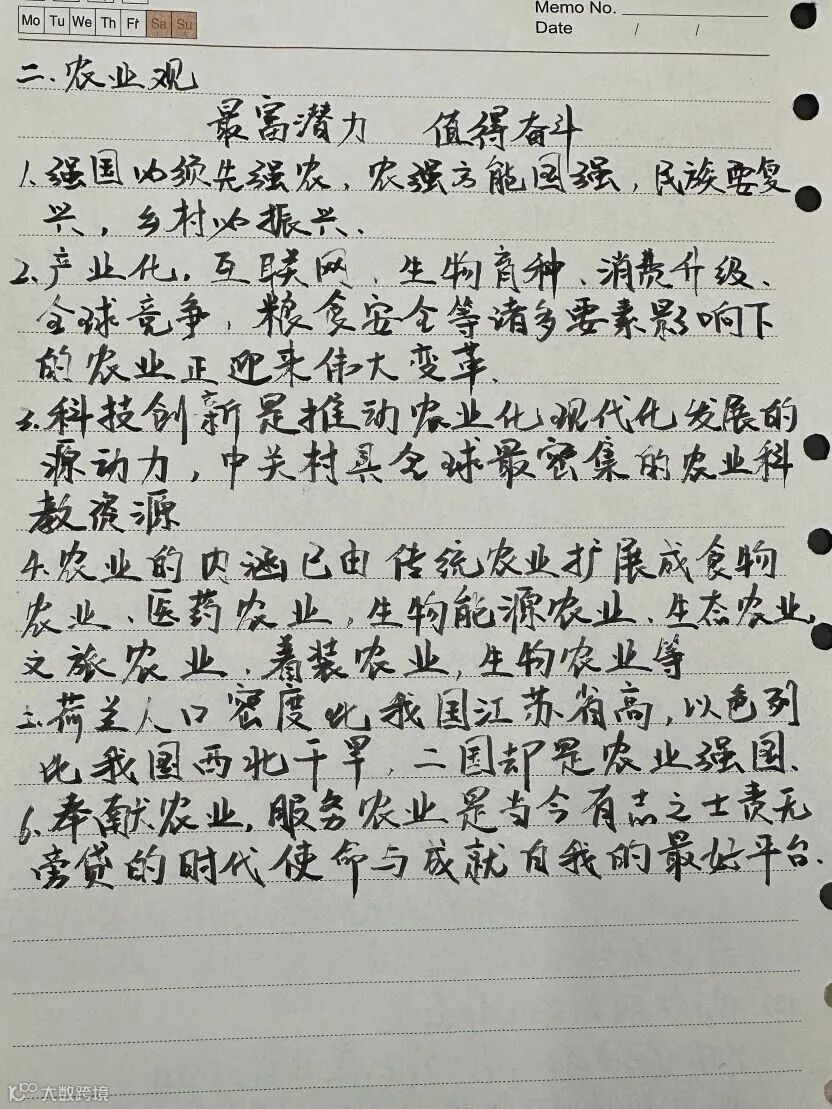 Memo No.
Mo Tu We Th Fr Sa Su
Date / /
二、农业观
最富潜力 值得奋斗
1、强国必须先强农，农强方能国强，民族要复
兴，乡村必振兴、
2、产业化，互联网、生物育种、消费升级、
全球竞争，粮食安全等诸多要素影响下
的农业正迎来伟大变革、
3、科技创新是推动农业化现代化发展的
源动力，中关村具全球最密集的农业科
教资源
4、农业的内涵已由传统农业扩展成食物
农业、医药农业，生物能源农业、生态农业，
文旅农业、着装农业，生物农业等
5、荷兰人口密度比我国江苏省高，以色列
比我国西北干旱，二国却是农业强国、
6、奉献农业，服务农业是当今有志之士责无
旁贷的时代使命与成就自我的最好平台、
大数跨境